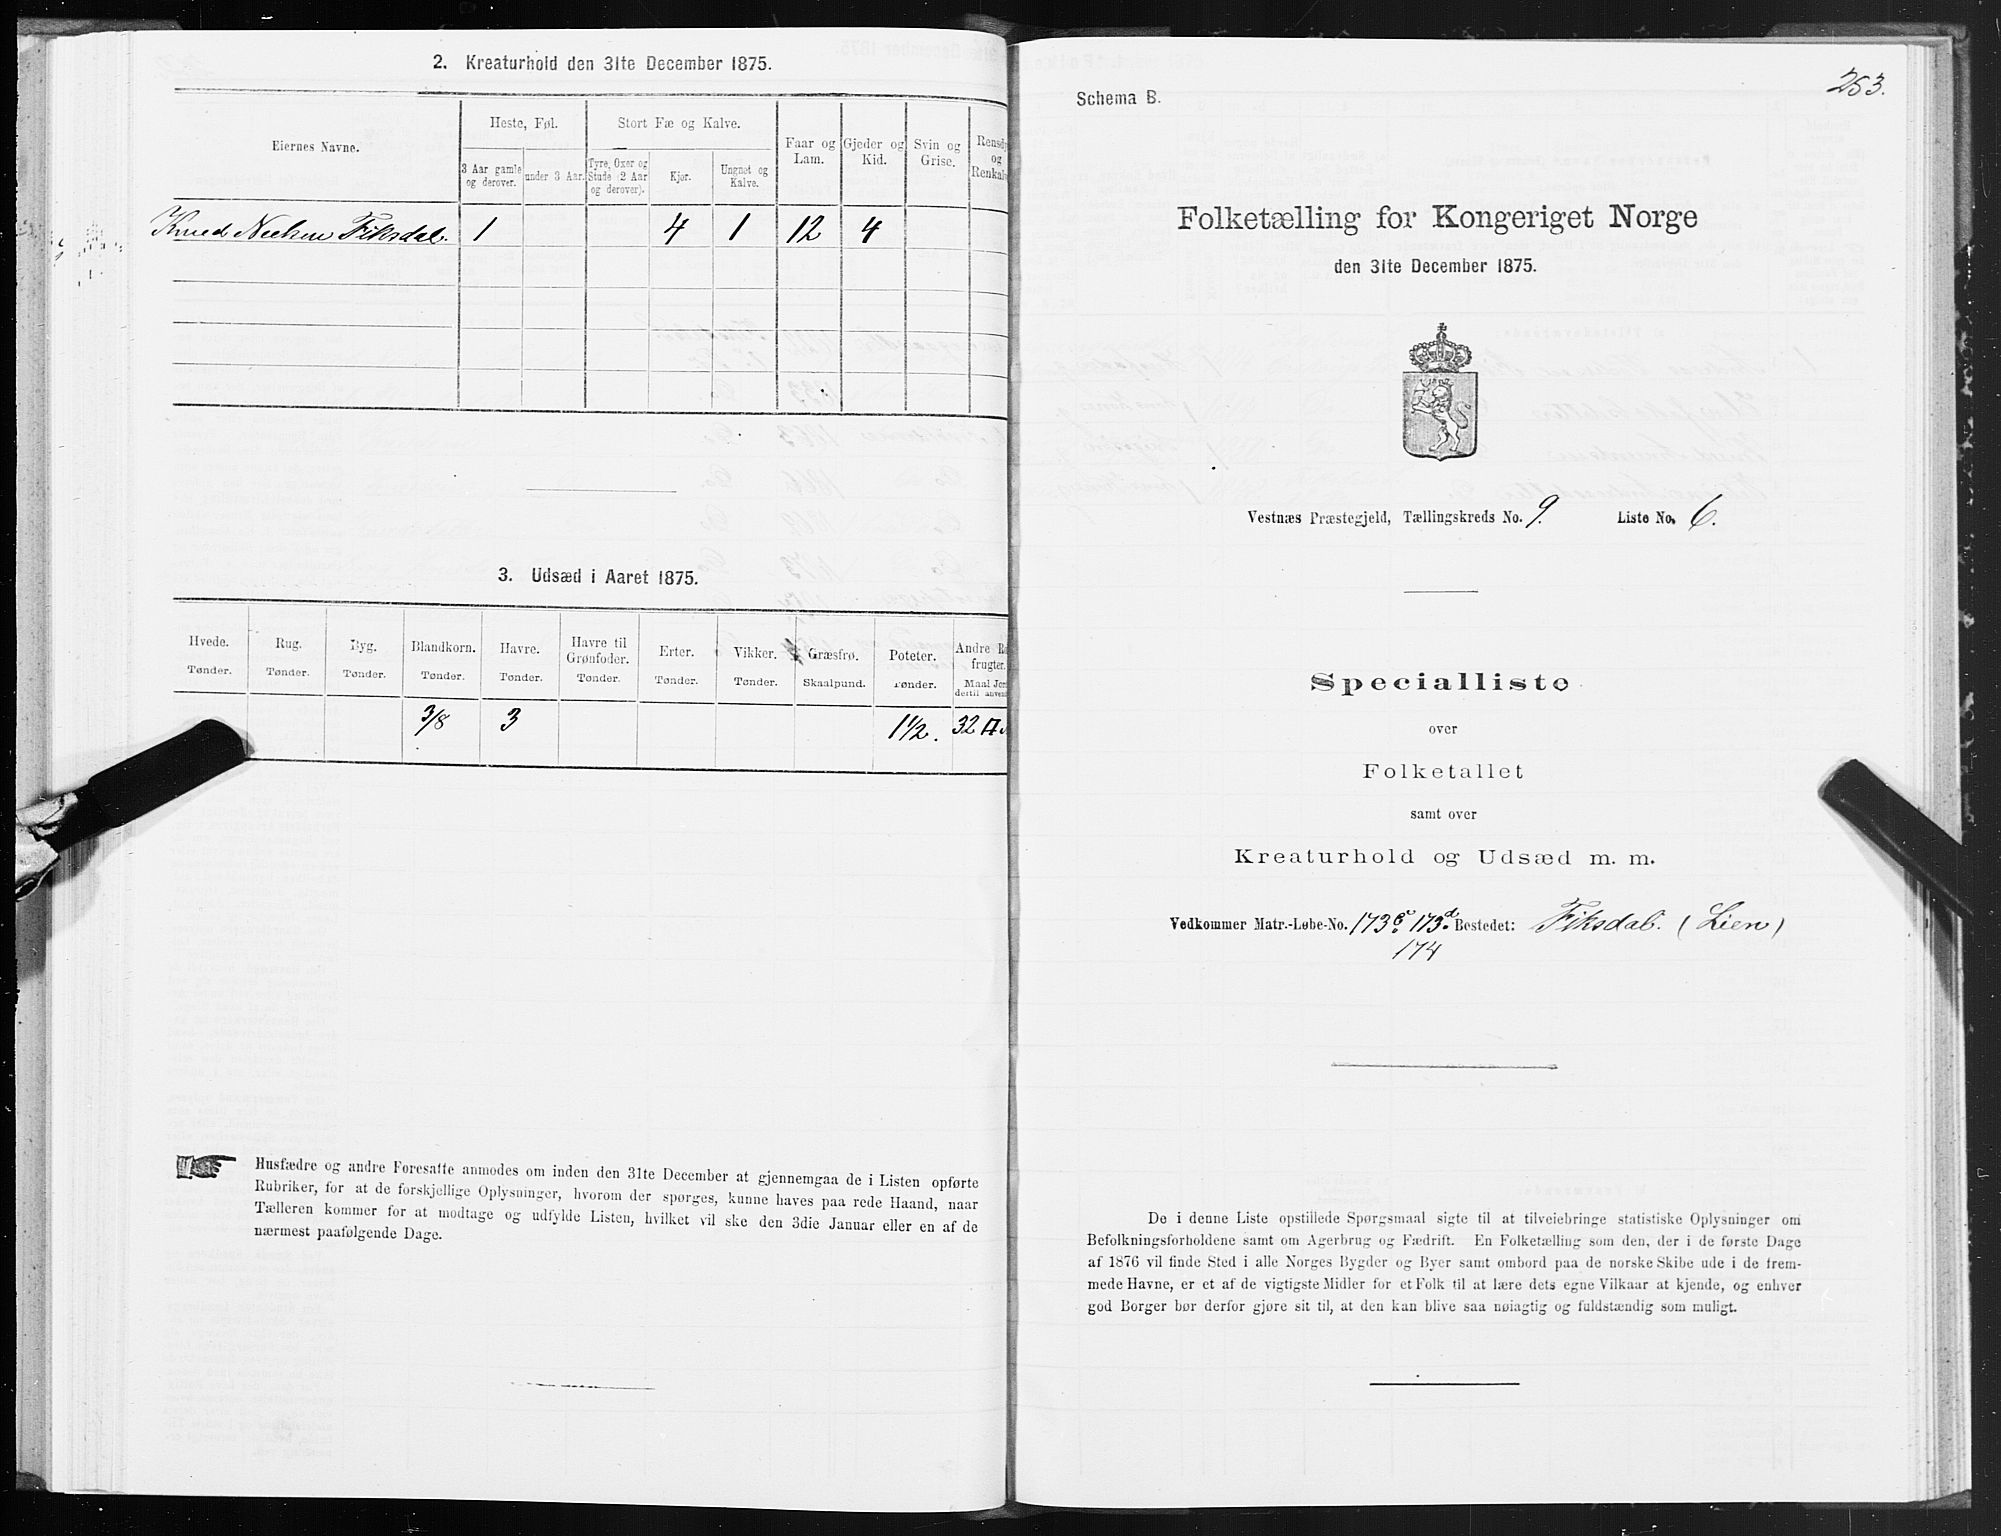 2. Kreaturhold den 31te December 1875.
Eiernes Navne.
Heste, Føl.
Stort Fæ og Kalve.
Faar og Lam.
Gjeder og Kid.
Svin og Grise.
og
3 Aar gamle og derover.
under 3 Aar.
Tyre, Oxer og Stude (2 Aar og derover).
Kjør.
Ungnøt og Kalve.
Knud Nielsen Fiksdal. 1 4 1 12 4
3. Udsæd i Aaret 1875.
Hvede. Rug. Byg. Blandkorn. Havre. Havre til Grønfoder. Erter. Vikker. Græsfrø. Poteter. Andre
frugter.
Tønder. Tønder. Tønder. Tønder. Tønder. Tønder. Tønder. Tønder. Skaalpund. Tønder. Maal
dertil
3/8 3 1 1/2. 32
Husfædre og andre Foresatte anmodes om inden den 31te December at gjennemgaa de i Listen opførte
Rubriker, for at de forskjellige Oplysninger, hvorom der spørges, kunne haves paa rede Haand, naar
Tælleren kommer for at modtage og udfylde Listen, hvilket vil ske den 3die Januar eller en af de
nærmest paafølgende Dage.
253.
Schema B.
Folketælling for Kongeriget Norge
den 31te December 1875.
Vestnæs Præstegjeld, Tællingskreds No. 9. Liste No. 6.
Specialliste
over
Folketallet
samt over
Kreaturhold og Udsæd m. m.
Vedkommer Matr.-Løbe-No. 173c. 173d. Bostedet: Fiksdal. (Lien)
174
De i denne Liste opstillede Spørgsmaal sigte til at tilveiebringe statistiske Oplysninger om
Befolkningsforholdene samt om Agerbrug og Fædrift. En Folketælling som den, der i de første Dage
af 1876 vil finde Sted i alle Norges Bygder og Byer samt ombord paa de norske Skibe ude i de frem-
mede Havne, er et af de vigtigste Midler for et Folk til at lære dets egne Vilkaar at kjende, og enhver
god Borger bør derfor gjøre sit til, at den kan blive saa nøiagtig og fuldstændig som muligt.